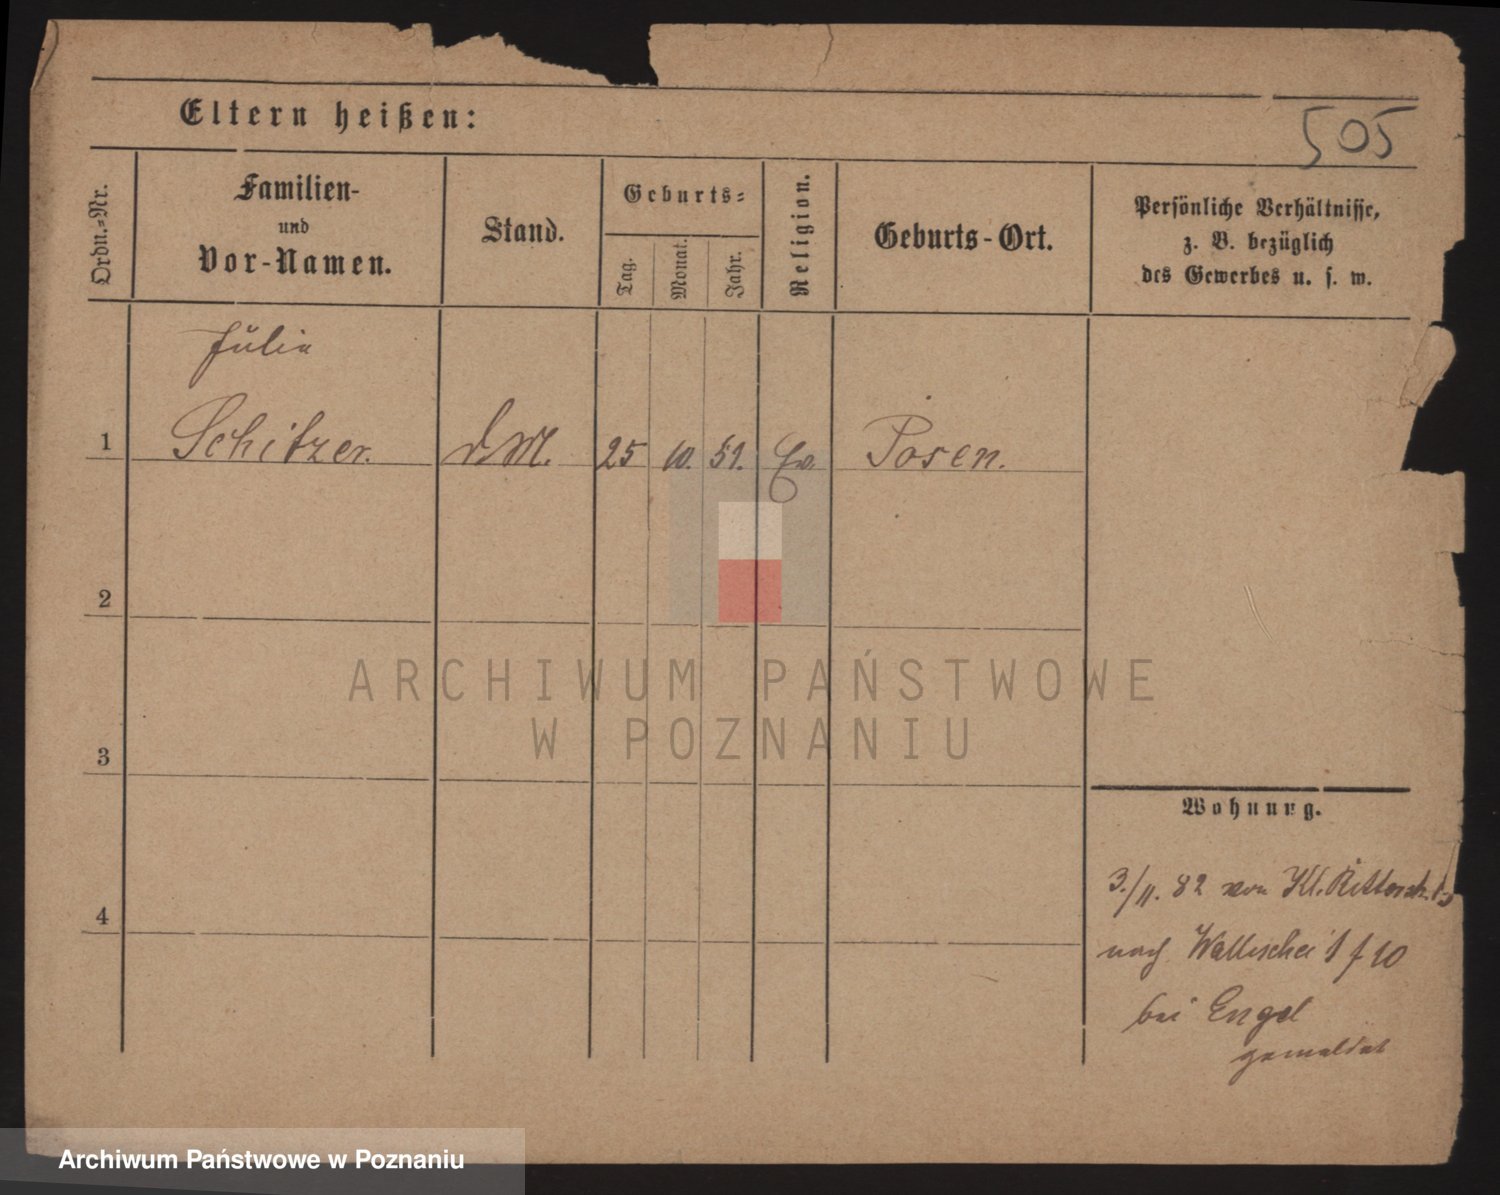 505
Eltern heißen:
Ordn.=Nr.
Familien-
und
Vor-Namen.
Stand.
Geburts=
Tag.
Monat.
Jahr.
Religion.
Geburts-Ort.
Persönliche Verhältnisse,
z. B. bezüglich
des Gewerbes u. s. w.
Julie
1 Schitzer. D.M. 25 10. 51. Ev. Posen.
2
3
4
ARCHIWUM PAŃSTWOWE
W POZNANIU
Wohnung.
3./11. 82 von Kl. Ritterstr.
nach Wallischei 10
bei Engel
gemeldet
Archiwum Państwowe w Poznaniu